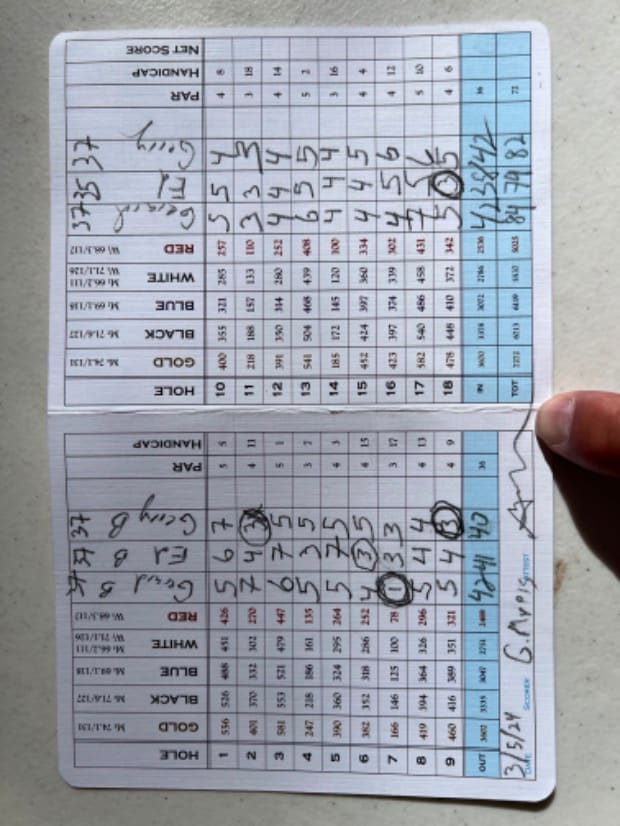 HOLE 1 2 3 4 5 6 7 8 9 OUT
GOLD M: 74.1/131 556 401 581 247 390 382 166 419 460 3602
BLACK M: 71.6/127 526 370 553 218 360 352 146 394 416 3335
BLUE M: 69.1/118 488 332 521 186 324 318 125 364 389 3047
WHITE M: 66.2/111 W: 71.1/126 451 302 479 161 295 286 100 326 351 2751
RED W: 68.3/117 426 270 447 135 264 252 78 296 321 2489
37 Gerard B 5 7 6 5 5 4 1 5 5 42
37 Ed B 6 4 7 3 7 3 3 4 4 41
37 Gerry B 7 3 5 5 5 5 3 4 3 40
PAR 5 4 5 3 4 4 3 4 4 36
HANDICAP 5 11 1 7 3 15 17 13 9
HOLE 10 11 12 13 14 15 16 17 18 IN TOT
GOLD M: 74.1/131 400 218 391 541 185 452 423 582 478 3670 7272
BLACK M: 71.6/127 355 188 350 504 172 424 397 540 448 3378 6713
BLUE M: 69.1/118 321 157 314 468 145 397 374 486 410 3072 6119
WHITE M: 66.2/111 W: 71.1/126 285 133 280 439 120 360 339 458 372 2786 5537
RED W: 68.3/117 257 110 252 408 100 334 302 431 342 2536 5025
37 Gerard 5 3 4 6 4 4 4 7 5 42 84
35 Ed 5 3 4 5 4 4 5 5 3 38 79
37 Gerry 4 3 4 5 4 5 6 6 5 42 82
PAR 4 3 4 5 3 4 4 5 4 36 72
HANDICAP 8 18 14 2 16 4 12 10 6
NET SCORE
DATE 3/5/24 SCORER ATTEST